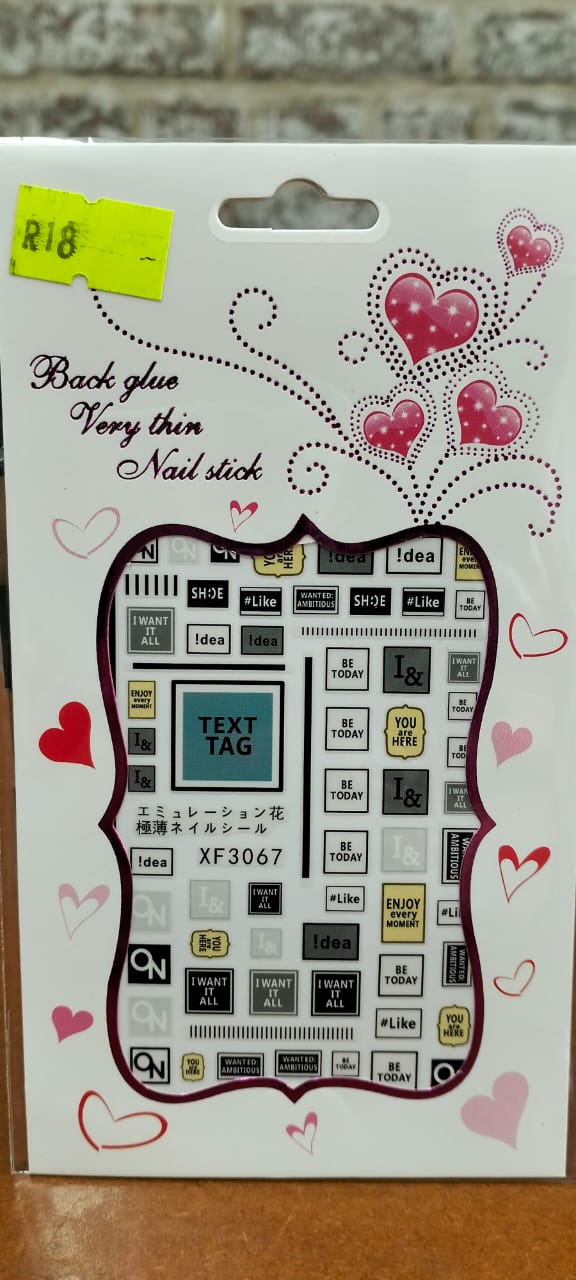 R18
Back glue
Very thin
Nail stick
ON
ON
ON
!dea
!dea
SH:DE
#Like
WANTED:
AMBITIOUS
SH:DE
#Like
BE
TODAY
I WANT
IT
ALL
!dea
!dea
BE
TODAY
I&
I WANT
IT
ALL
ENJOY
every
MOMENT
TEXT
TAG
BE
TODAY
YOU
are
HERE
BE
TODAY
I&
I&
BE
TODAY
I&
エミュレーション花
極薄ネイルシール
XF3067
BE
TODAY
I&
WANTED:
AMBITIOUS
!dea
I&
I WANT
IT
ALL
#Like
ENJOY
every
MOMENT
#Li
ON
YOU
are
HERE
I&
!dea
ON
I WANT
IT
ALL
I WANT
IT
ALL
I WANT
IT
ALL
BE
TODAY
WANTED:
AMBITIOUS
ON
#Like
YOU
are
HERE
ON
YOU
are
HERE
WANTED:
AMBITIOUS
WANTED:
AMBITIOUS
BE
TODAY
BE
TODAY